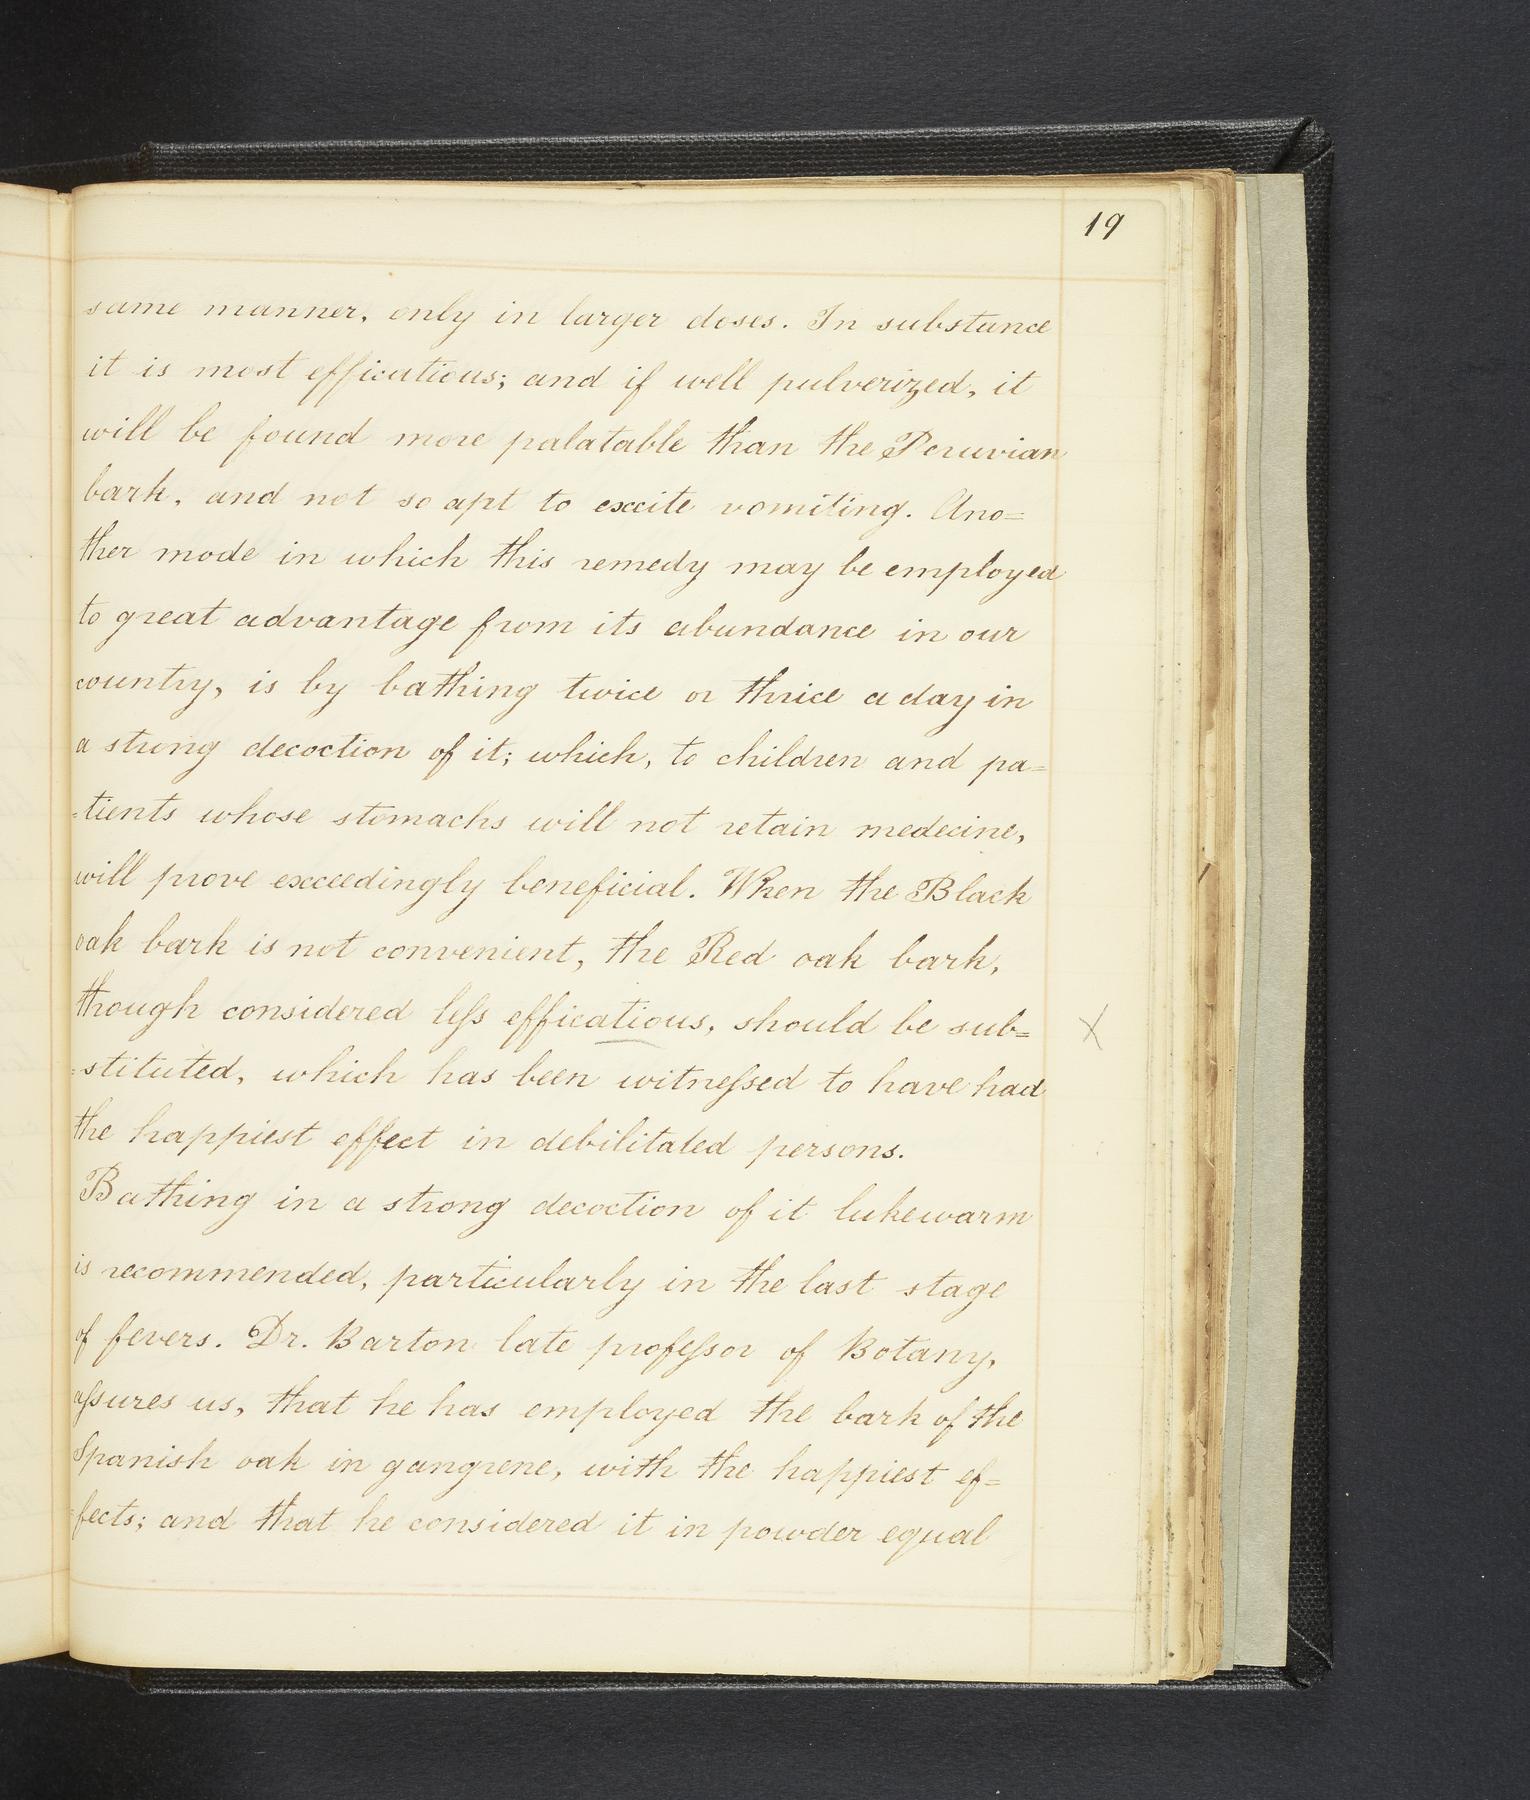 19
same manner, only in larger doses. In substance
it is most efficatious; and if well pulverized, it
will be found more palatable than the Peruvian
bark, and not so apt to excite vomiting. Ano=
ther mode in which this remedy may be employed
to great advantage from its abundance in our
country, is by bathing twice or thrice a day in
a strong decoction of it; which, to children and pa=
=tients whose stomachs will not retain medecine,
will prove exceedingly beneficial. When the Black
oak bark is not convenient, the Red oak bark,
though considered leſs efficatious, should be sub=
=stituted, which has been witneſsed to have had
the happiest effect in debilitated persons.
Bathing in a strong decoction of it lukewarm
is recommended, particularly in the last stage
of fevers. Dr. Barton late profeſsor of Botany,
aſsures us, that he has employed the bark of the
Spanish oak in gangrene, with the happiest ef=
=fects; and that he considered it in powder equal
X